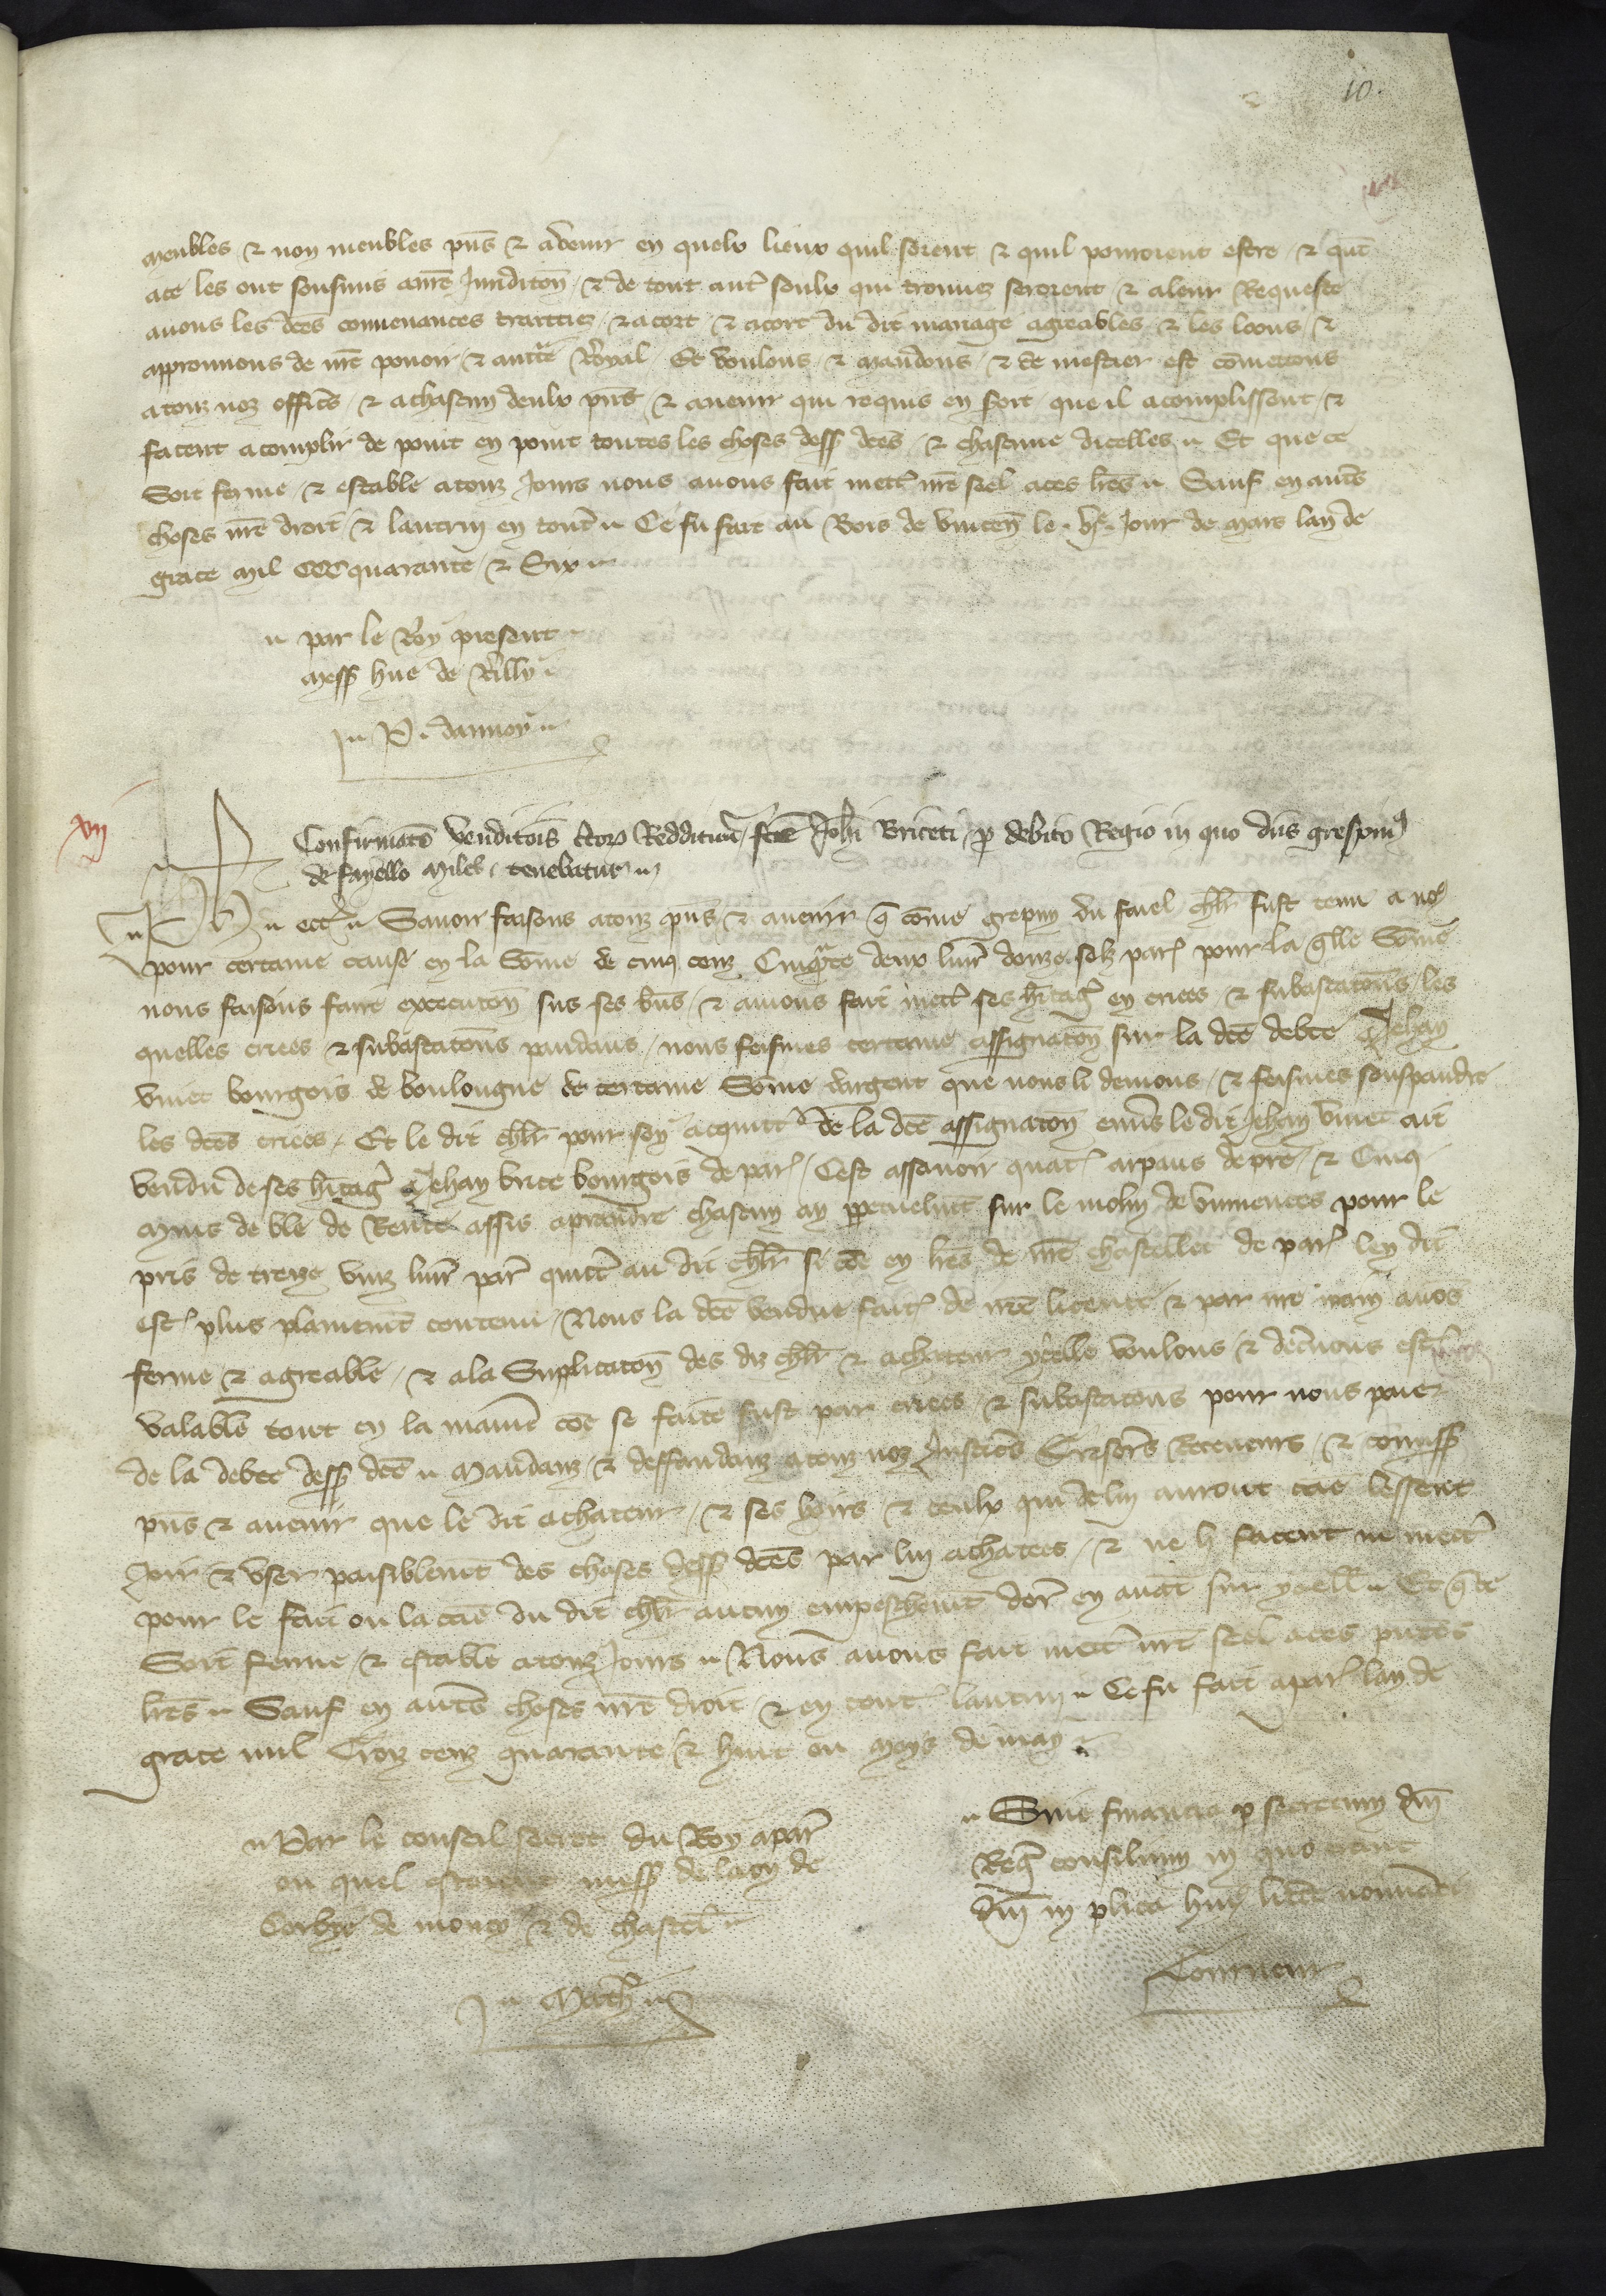 10.
meubles & non meubles pns̄ & avenir en quelx lieux quil soient & quil pourroient estre & qnt̄
ace les ont sousmis a nr̄e Juridicton̄ & de tout aut̉ soulx qui trouvez seroient & a leur Requeste
avons les dc̄es convenances traictiez & acort & acort du dit mariage agreables & les loons &
approuvons de nr̄e povoir & auct̃te Royal Et voulons & mandons & se mestier est cōmettons
a touz noz offic̄s & a chascun deulx pns̄ & avenir qui requis en sort que il acomplissent &
facent acomplir de point en point toutes les choses dess̉ dc̄es & chascune dicelles Et que ce
Soit ferme & estable a touz Jours nous avons fait mett̉ nr̄e seel a ces lr̄es Sauf en autr̄s
choses nr̄e droit & lautrui en tout̉ Ce fu fait au Bois de vincen̄ le .vj. Jour de mars lan de
grace mil CCC quarante & Six
par le Roy present
mess̉ hue de Rilly
P. dannoy
xvij
Confirmatō venditōis cto℞ Reddituū fc̄e Joh̄i Briceti p̱ debito Regio in quo dn̄s grespinꝰ
de fayello miles tenebatur
Ph̉ ect̉ Savoir faisons a touz pns̄ & avenir q̄ cōme grepin du faiel chl̉r fust tenu a noꝰ
pour certaine cause en la Sōme de cinq cenz Cinqᵃte deux livr̉ douze solz par̉ pour la q̄lle Sōme
nous faisons faire execucton̄ sus ses biēs & avions fait mett̉ ses hitag̉ en criees & subastatōns les
quelles criees & subastatōns pendans nous feismes certaine assignaton̄ sur la dc̄e debte Jehan
vinet bourgois de boulongne de certaine Sōme dargent que nous li devions & feismes souspandre
les dc̄es criees Et le dit chl̉r pour soy acquitt̉ de la dc̄e assignaton̄ env̉s le dit Jehan vinet ait
vendu de ses hitag̉ a Jehan brice bourgois de par̉ Cest assavoir quat̉ arpans de pre & Cinq
muis de ble de Rente assis a prendre chascun an p̱petuelmt̄ sur le molin de pour le
pris de treize vinz livr̉ par̉ quitt̉ au dit chl̉r si cōe en lr̄es de nr̄e chastellet de par̉ len dit
est̉ plus plainemt̄ contenu Nous la dc̄e vendue fait̉ de nr̄e licence & par nr̄e main avōs
ferme & agreable & a la Suplicaton̄ des diz chl̉r & achateur ycelle voulons & decl̉nons est̉
valable tout en la manie̅r cōe se faite fust par criees & subastatōns pour nous paier
de la debte dess̉ dc̄e Mandanz & deffandanz a touz noz Justic̄s Tresor̄s Receveurs & cōmiss̉
pns̄ & avenir que le dit achateur & ses hoirs & ceulx qui de lui auront cāe lessent
Joir & user paisiblemt̄ des choses dess̉ dc̄es par lui achatees & ne li facent ne mett̉
pour le fait ou la cāe du dit chl̉r aucun empeschemt̄ dor̉ en avāt sur ycell̄ Et q̄ ce
Soit ferme & estable a touz Jours Nous avons fait mett̉ nr̄e seel a ces pn̄tes
lr̄es Sauf en autr̄s choses nr̄e droit & en tout̉ lautrui Ce fu fait a par̉ lan de
grace mil Troiz cenz quarante & huit ou moys de may
Par le conseil secret du Roy a par̉
ou quel estoient mess̉ de laon de
Corbye de moncy & de chastel̄
Math̉
Sine financia p̱ secretum dn̄i
Reg̉ consilium in quo erant
dn̄i in plica huiꝰ litt̉e nominati
Tourneur